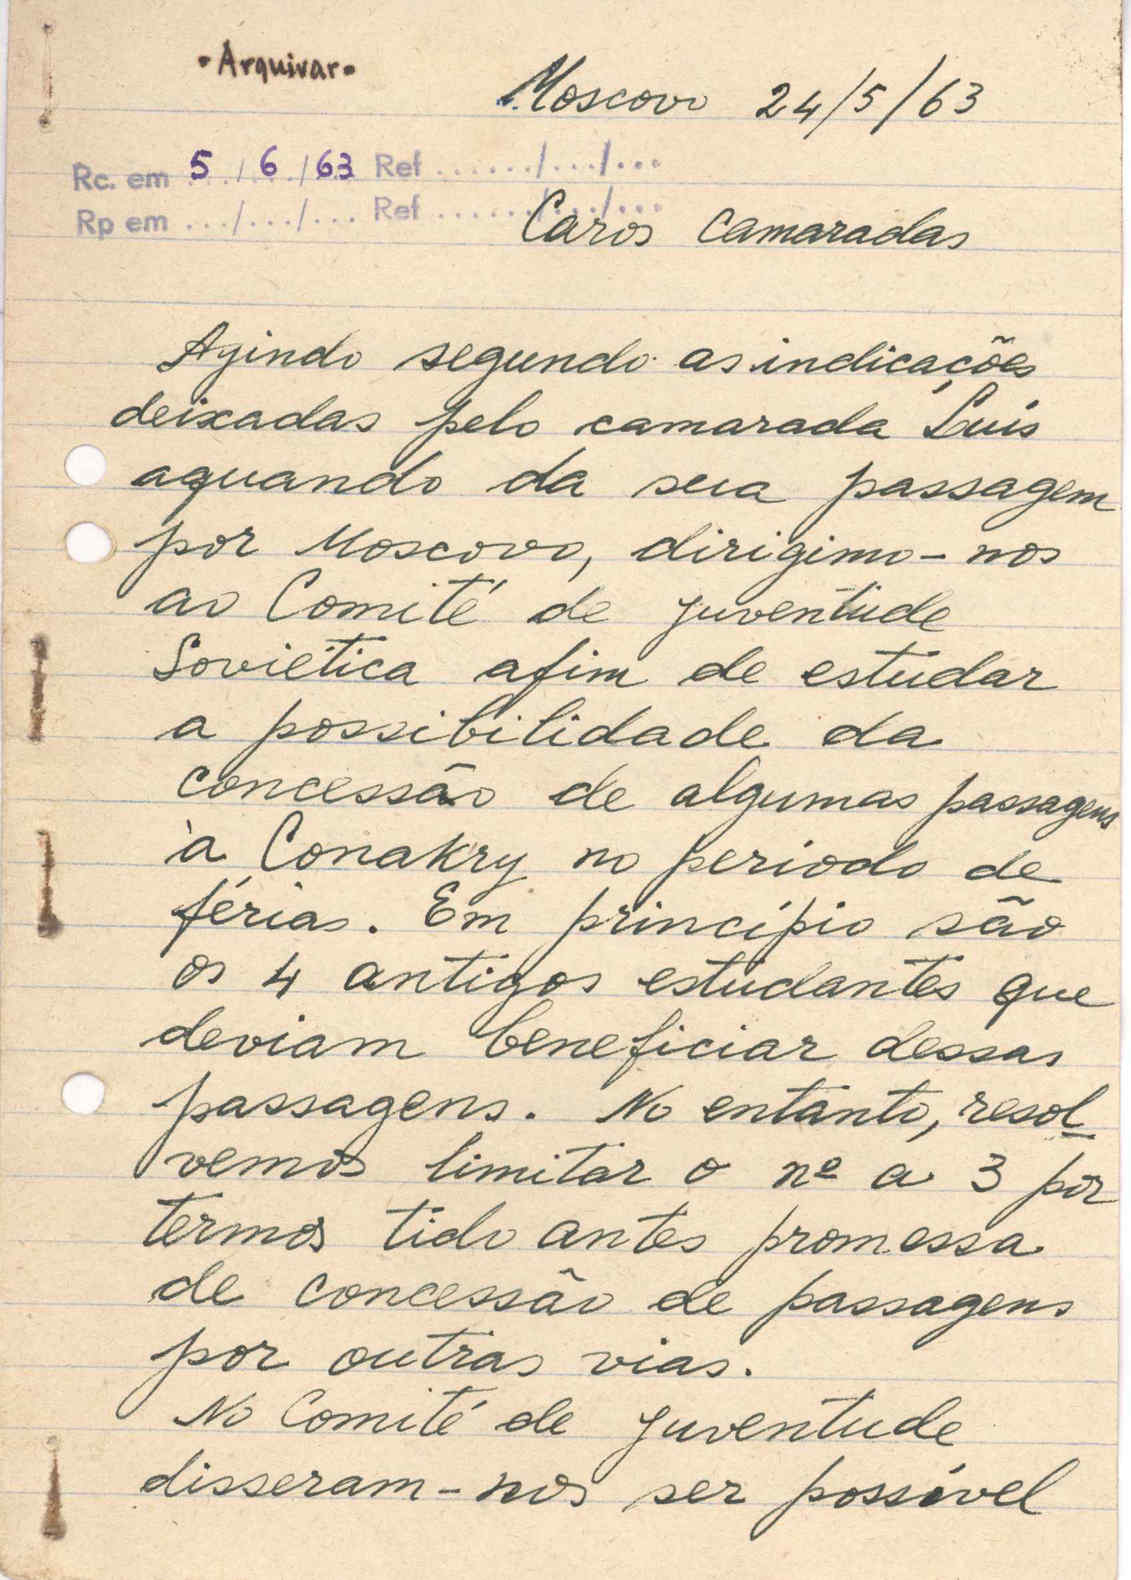 • Arquivar •
Moscovo 24/5/63
Rc. em 5/6/63 Ref ......./.../...
Rp em .../.../... Ref ......./.../...
Caros camaradas
Agindo segundo as indicações
deixadas pelo camarada Luís
aquando da sua passagem
por Moscovo, dirigimo-nos
ao Comité de juventude
Soviética afim de estudar
a possibilidade da
concessão de algumas passagens
à Conakry no periodo de
férias. Em princípio são
os 4 antigos estudantes que
deviam beneficiar dessas
passagens. No entanto, resol-
vemos limitar o nº a 3 por
termos tido antes promessa
de concessão de passagens
por outras vias.
No Comité de juventude
disseram-nos ser possível